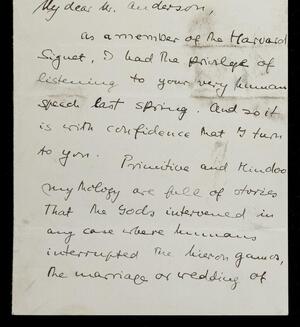 My dear Mr. Anderson,
as a member of the Harvard
Signet, I had the privilege of
listening to your very human
speech last spring. And so it
is with confidence that I turn
to you. Primitive and Hindoo
mythology are full of stories
that the Gods intervened in
any case where humans
interrupted the hieron gamos,
the marriage or wedding of